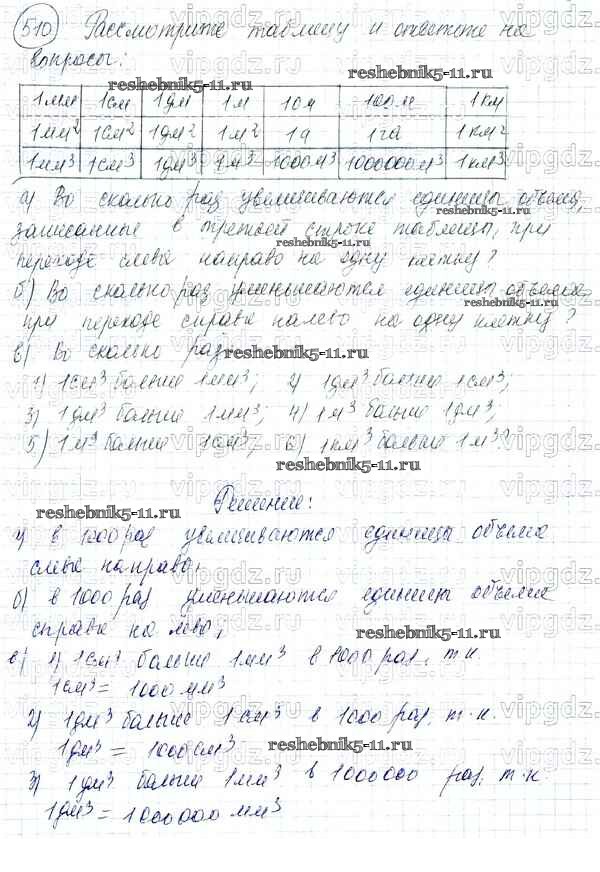 510 Рассмотрите таблицу и ответьте на
вопросы:
1мм 1см 1дм 1м 10м 100м 1км
1мм² 1см² 1дм² 1м² 1а 1га 1км²
1мм³ 1см³ 1дм³ 1м³ 1000м³ 1000000м³ 1км³
а) Во сколько раз увеличиваются единицы объема,
записанные в третьей строке таблицы, при
переходе слева направо на одну клетку?
б) Во сколько раз уменьшаются единицы объема
при переходе справа налево на одну клетку?
в) Во сколько раз:
1) 1см³ больше 1мм³; 2) 1дм³ больше 1см³;
3) 1дм³ больше 1мм³; 4) 1м³ больше 1дм³;
5) 1м³ больше 1см³; 6) 1км³ больше 1м³?
Решение:
а) в 1000 раз увеличиваются единицы объема
слева направо,
б) в 1000 раз уменьшаются единицы объема
справа на лево,
в) 1) 1см³ больше 1мм³ в 1000 раз, т.к.
1см³ = 1000мм³
2) 1дм³ больше 1см³ в 1000 раз, т.к.
1дм³ = 1000см³
3) 1дм³ больше 1мм³ в 1000000 раз, т.к.
1дм³ = 1000000мм³
reshebnik5-11.ru
vipgdz.ru